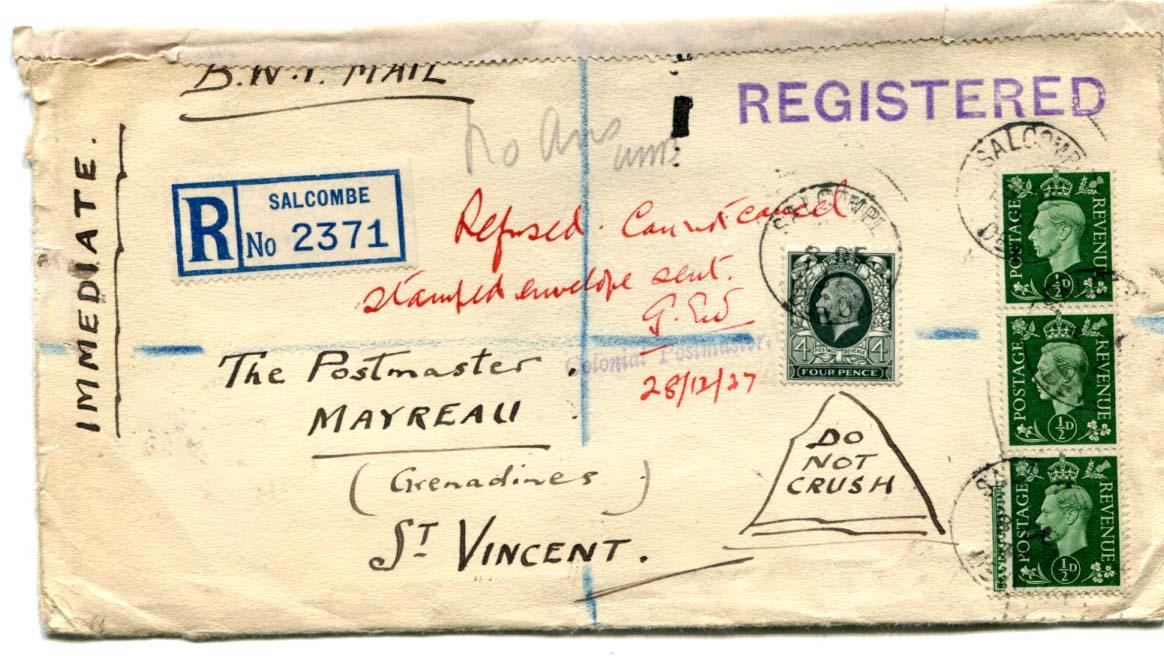 B.W.I. MAIL
REGISTERED
IMMEDIATE.
R
SALCOMBE
No 2371
no Ans
Refused. Cannot cancel
stamped envelope sent.
Colonial Postmaster.
28/12/37
The Postmaster
MAYREAU
(Grenadines)
ST VINCENT.
DO
NOT
CRUSH
SALCOMBE
4 POSTAGE REVENUE 4
FOUR PENCE
SALCOMBE
POSTAGE REVENUE
½D
POSTAGE REVENUE
½D
POSTAGE REVENUE
½D